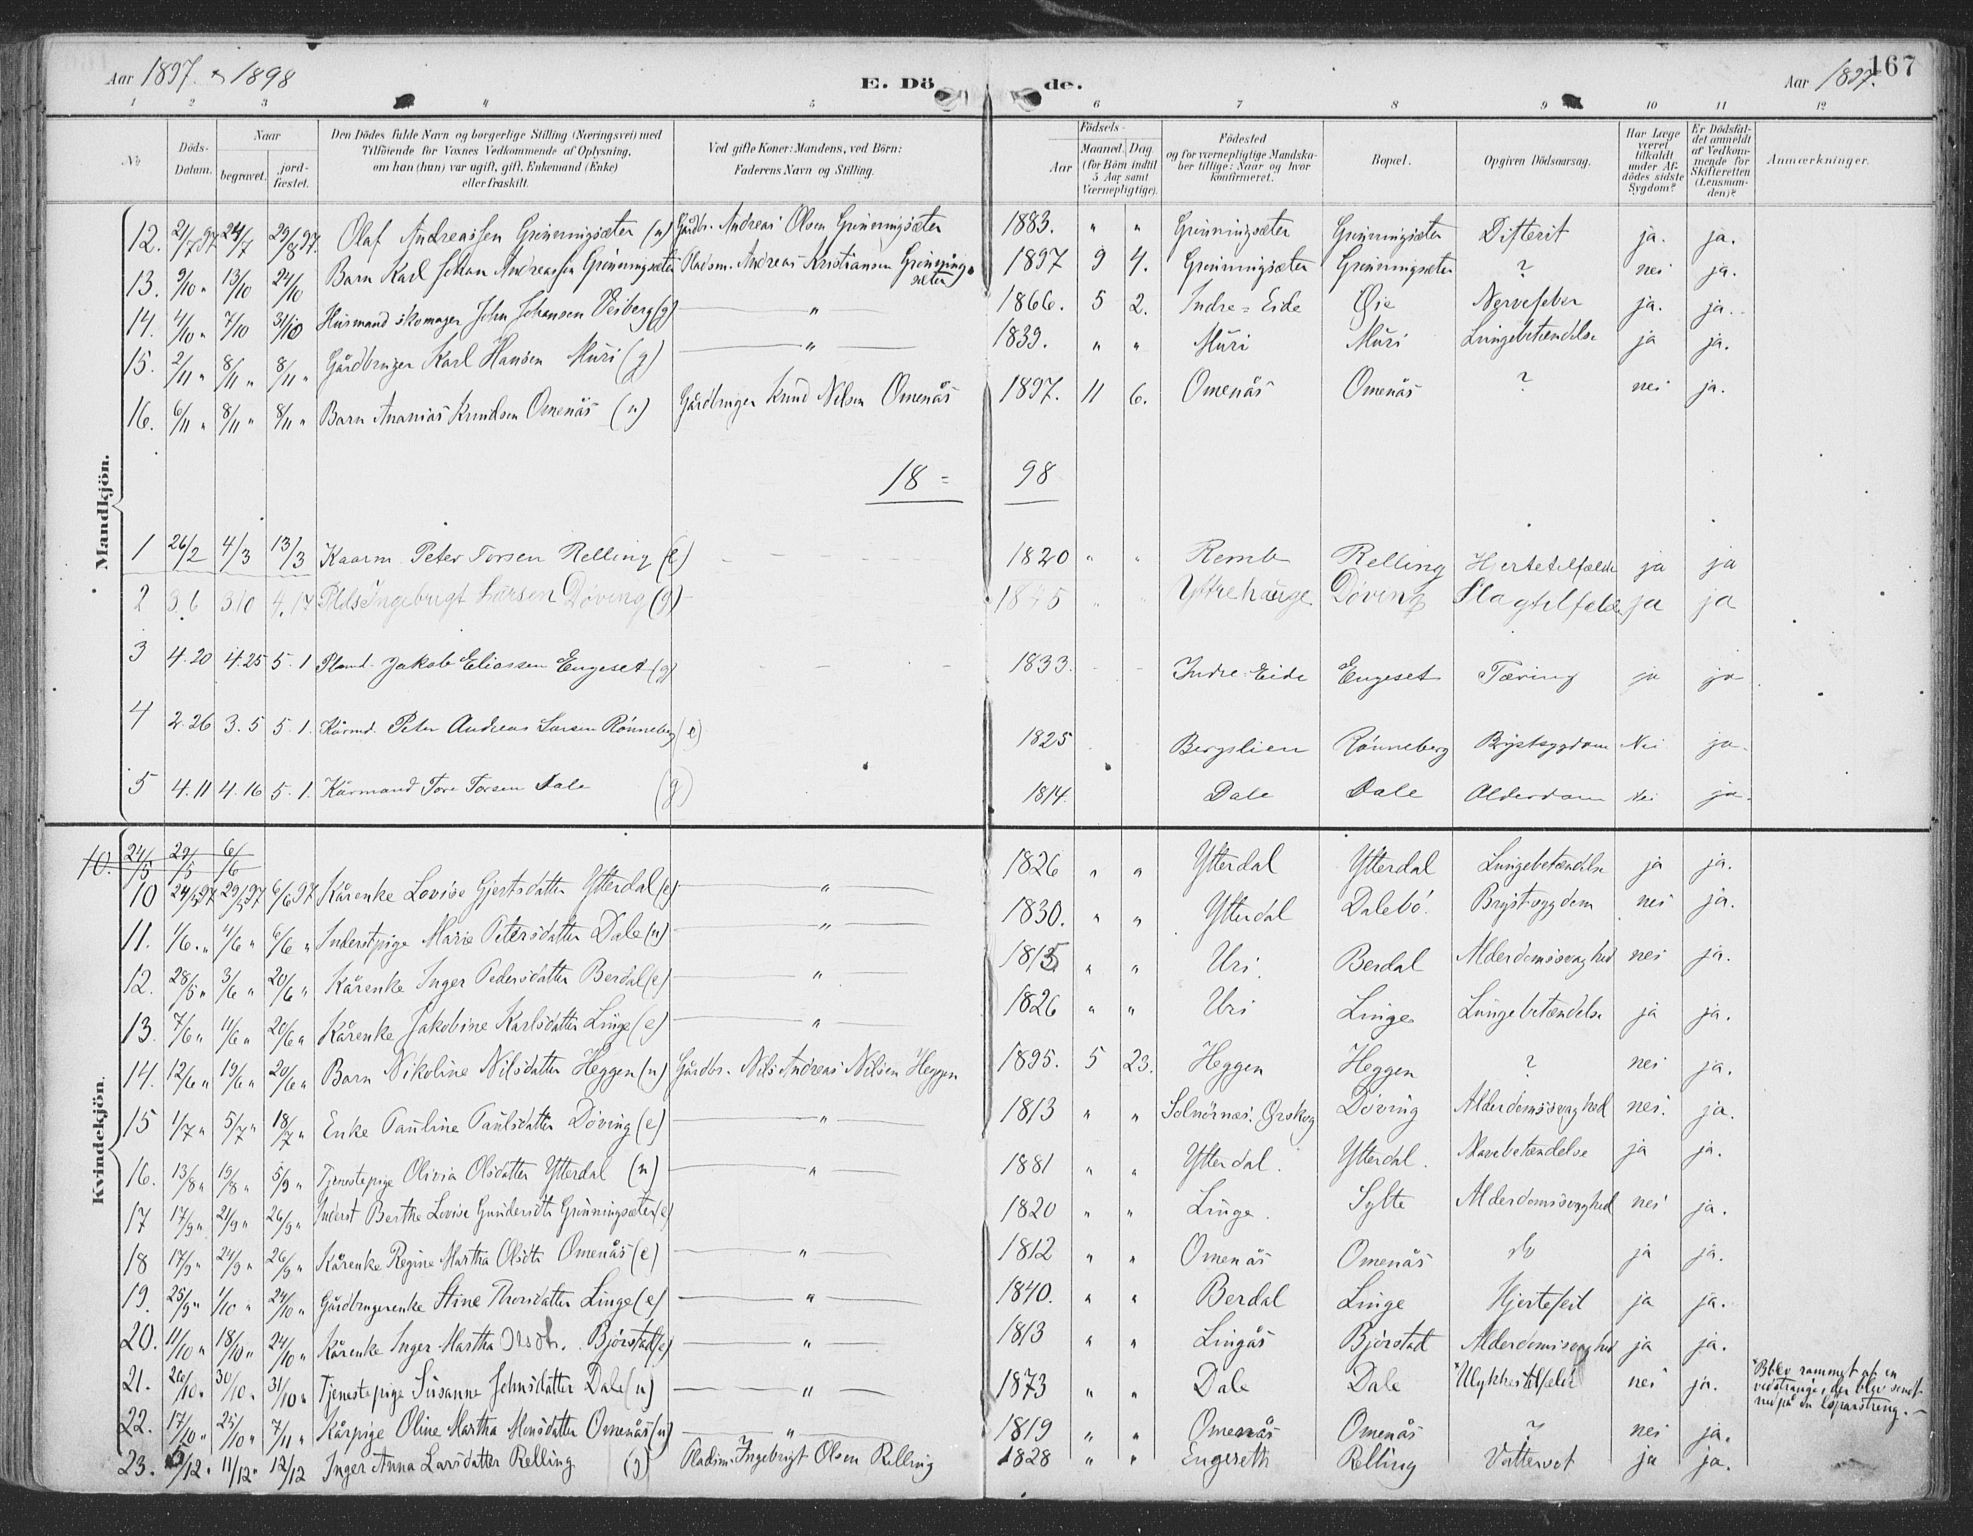 Aar 1897. & 1898
E. Dö de.
Aar 1897.
167
1 2 3 4 5 6 7 8 9 10 11 12
No
Döds-Datum.
Naar
begravet.
jord-fæstet.
Den Dödes fulde Navn og borgerlige Stilling (Næringsvei) med
Tilföiende for Voxnes Vedkommende af Oplysning,
om han (hun) var ugift, gift, Enkemand (Enke)
eller fraskilt.
Ved gifte Koner: Mandens, ved Börn:
Faderens Navn og Stilling.
Födsels-
Aar
Maaned. Dag.
(for Börn indtil
5 Aar samt
Værnepligtige).
Födested
og for værnepligtige Mandska-
ber tillige: Naar og hvor
konfirmeret.
Bopæl.
Opgiven Dödsaarsag.
Har Læge
været
tilkaldt
under Af-
dödes sidste
Sygdom?
Er Dödsfal-
det anmeldt
af Vedkom-
mende for
Skifteretten
(Lensman-
den)?
Anmærkninger.
Mandkjön.
12. 2/7 97 24/7 29/8 97. Olaf Andreassen Grinningsæter (u) Gårdbr. Andreas Olsen Grinningsæter 1883. " " Grinningsæter Grinningsæter Difterit ja. ja.
13. 9/10 " 13/10 24/10 Barn Karl Johan Andreassen Grinningsæter Pladsm. Andreas Kristiansen Grinningsæter 1897 9 4. Grinningsæter Grinningsæter ? nei ja.
14. 4/10 " 7/10 31/10 Husmand skomager John Johansen Veiberg (g) " 1866. 5 2. Indre-Eide Øie Nervefeber ja. ja.
15. 2/11 " 8/11 " 8/11 " Gårdbruger Karl Hansen Muri (g) " 1839. " " Muri Muri Lungebetændelse ja ja.
16. 6/11 " 8/11 " 8/11 " Barn Ananias Knudsen Omenås (u) Gårdbruger Knud Nilsen Omenås 1897. 11 6. Omenås Omenås ? nei ja.
18 = 98
1 26/2 4/3 13/3 Kaarm. Peter Torsen Relling (e) 1820 " " Remb Relling Hjertetilfælde ja ja
2 3.6 3.10 4.17 Ingebrigt Larsen Döving (g) 1845 " " Yttrehauge Döving Slagtilfælde ja ja
3 4.20 4.25 5.1 Jakob Eliassen Engeset (g) 1833. Indre-Eide Engeset Tæring ja ja
4 2.26 3.5 5.1. Kårmd. Peter Andreas Larsen Rønneberg (e) 1825 Bergslien Rønneberg Brystsygdom Nei ja.
5 4.11 4.16 5.1. Kårmand Tore Torsen Dale (g) 1814. Dale Dale Alderdom Nei ja.
Kvindekjön.
10. 24/5 29/5 6/6
10 24/5 97 29/5 97 6/6 97 Kårenke Lovise Gjertsdatter Ytterdal (e) " 1826 " " Ytterdal Ytterdal Lungebetændelse ja ja.
11. 1/6 . " 4/6 " 6/6 " Inderstpige Marie Petersdatter Dale (u) " 1830. " " Ytterdal Dalebö. Brystsygdom nei ja.
12. 28/5 " 3/6 " 20/6 " Kårenke Inger Pedersdatter Berdal (e) " 1815 " " Uri. Berdal Alderdomssvaghed nei ja.
13. 7/6 " 11/6 " 20/6 " Kårenke Jakobine Karlsdatter Linge (e) " 1826 " " Uri Linge Lungebetændelse ja ja.
14. 12/6 " 19/6 " 20/6 " Barn Nikoline Nilsdatter Heggen (u) Gårdbr. Nils Andreas Nilsen Heggen 1895. 5 23. Heggen Heggen ? nei ja.
15 1/7 " 5/7 " 18/7 " Enke Pauline Paulsdatter Döving (e) " 1813 " " Solnörnæs. Ørskog Döving Alderdomssvaghed nei. ja.
16. 13/8 " 19/8 " 5/9 " Tjenestepige Olivia Olsdatter Ytterdal (u) " 1881 " " Ytterdal. Ytterdal. Mavebetændelse ja ja.
17 17/9 " 21/9 " 26/9 " Inderst Berthe Lovise Gundersdtr Grinningsæter (e) 1820 " " Linge. Sylte Alderdomssvaghed nei ja.
18 17/9 " 24/9 " 26/9 " Kårenke Regine Martha Olsdtr Omenås (e) " 1812 " " Omenås Omenås do ja ja.
19. 25/9 " 1/10 " 24/10 " Gårdbrugerenke Stine Thorsdatter Linge (e) " 1840. " " Berdal Linge Hjertefeil ja ja.
20. 11/10 " 18/10 " 24/10 " Kårenke Inger Martha Olsdtr. Bjørstad (e) " 1813 " " Lingås Bjørstad Alderdomssvaghed ja ja.
21. 20/10 " 30/10 " 31/10 " Tjenestepige Susanne Johnsdatter Dale (u) " 1873 " " Dale Dale Ulykkestilfælde nei ja. Blev rammet af en vedstrange, der blev sendt ned på en løparstreng.
22. 17/10 " 25/10 " 7/11 " Kårpige Oline Martha Monsdatter Omenås (u) " 1819 " " Omenås Omenås ? nei ja.
23. 5/12 " 11/12 " 12/12 Inger Anna Larsdatter Relling (g) Pladsm. Ingebrigt Olsen Relling 1828 " " Engeseth Relling Vattersot ja ja.